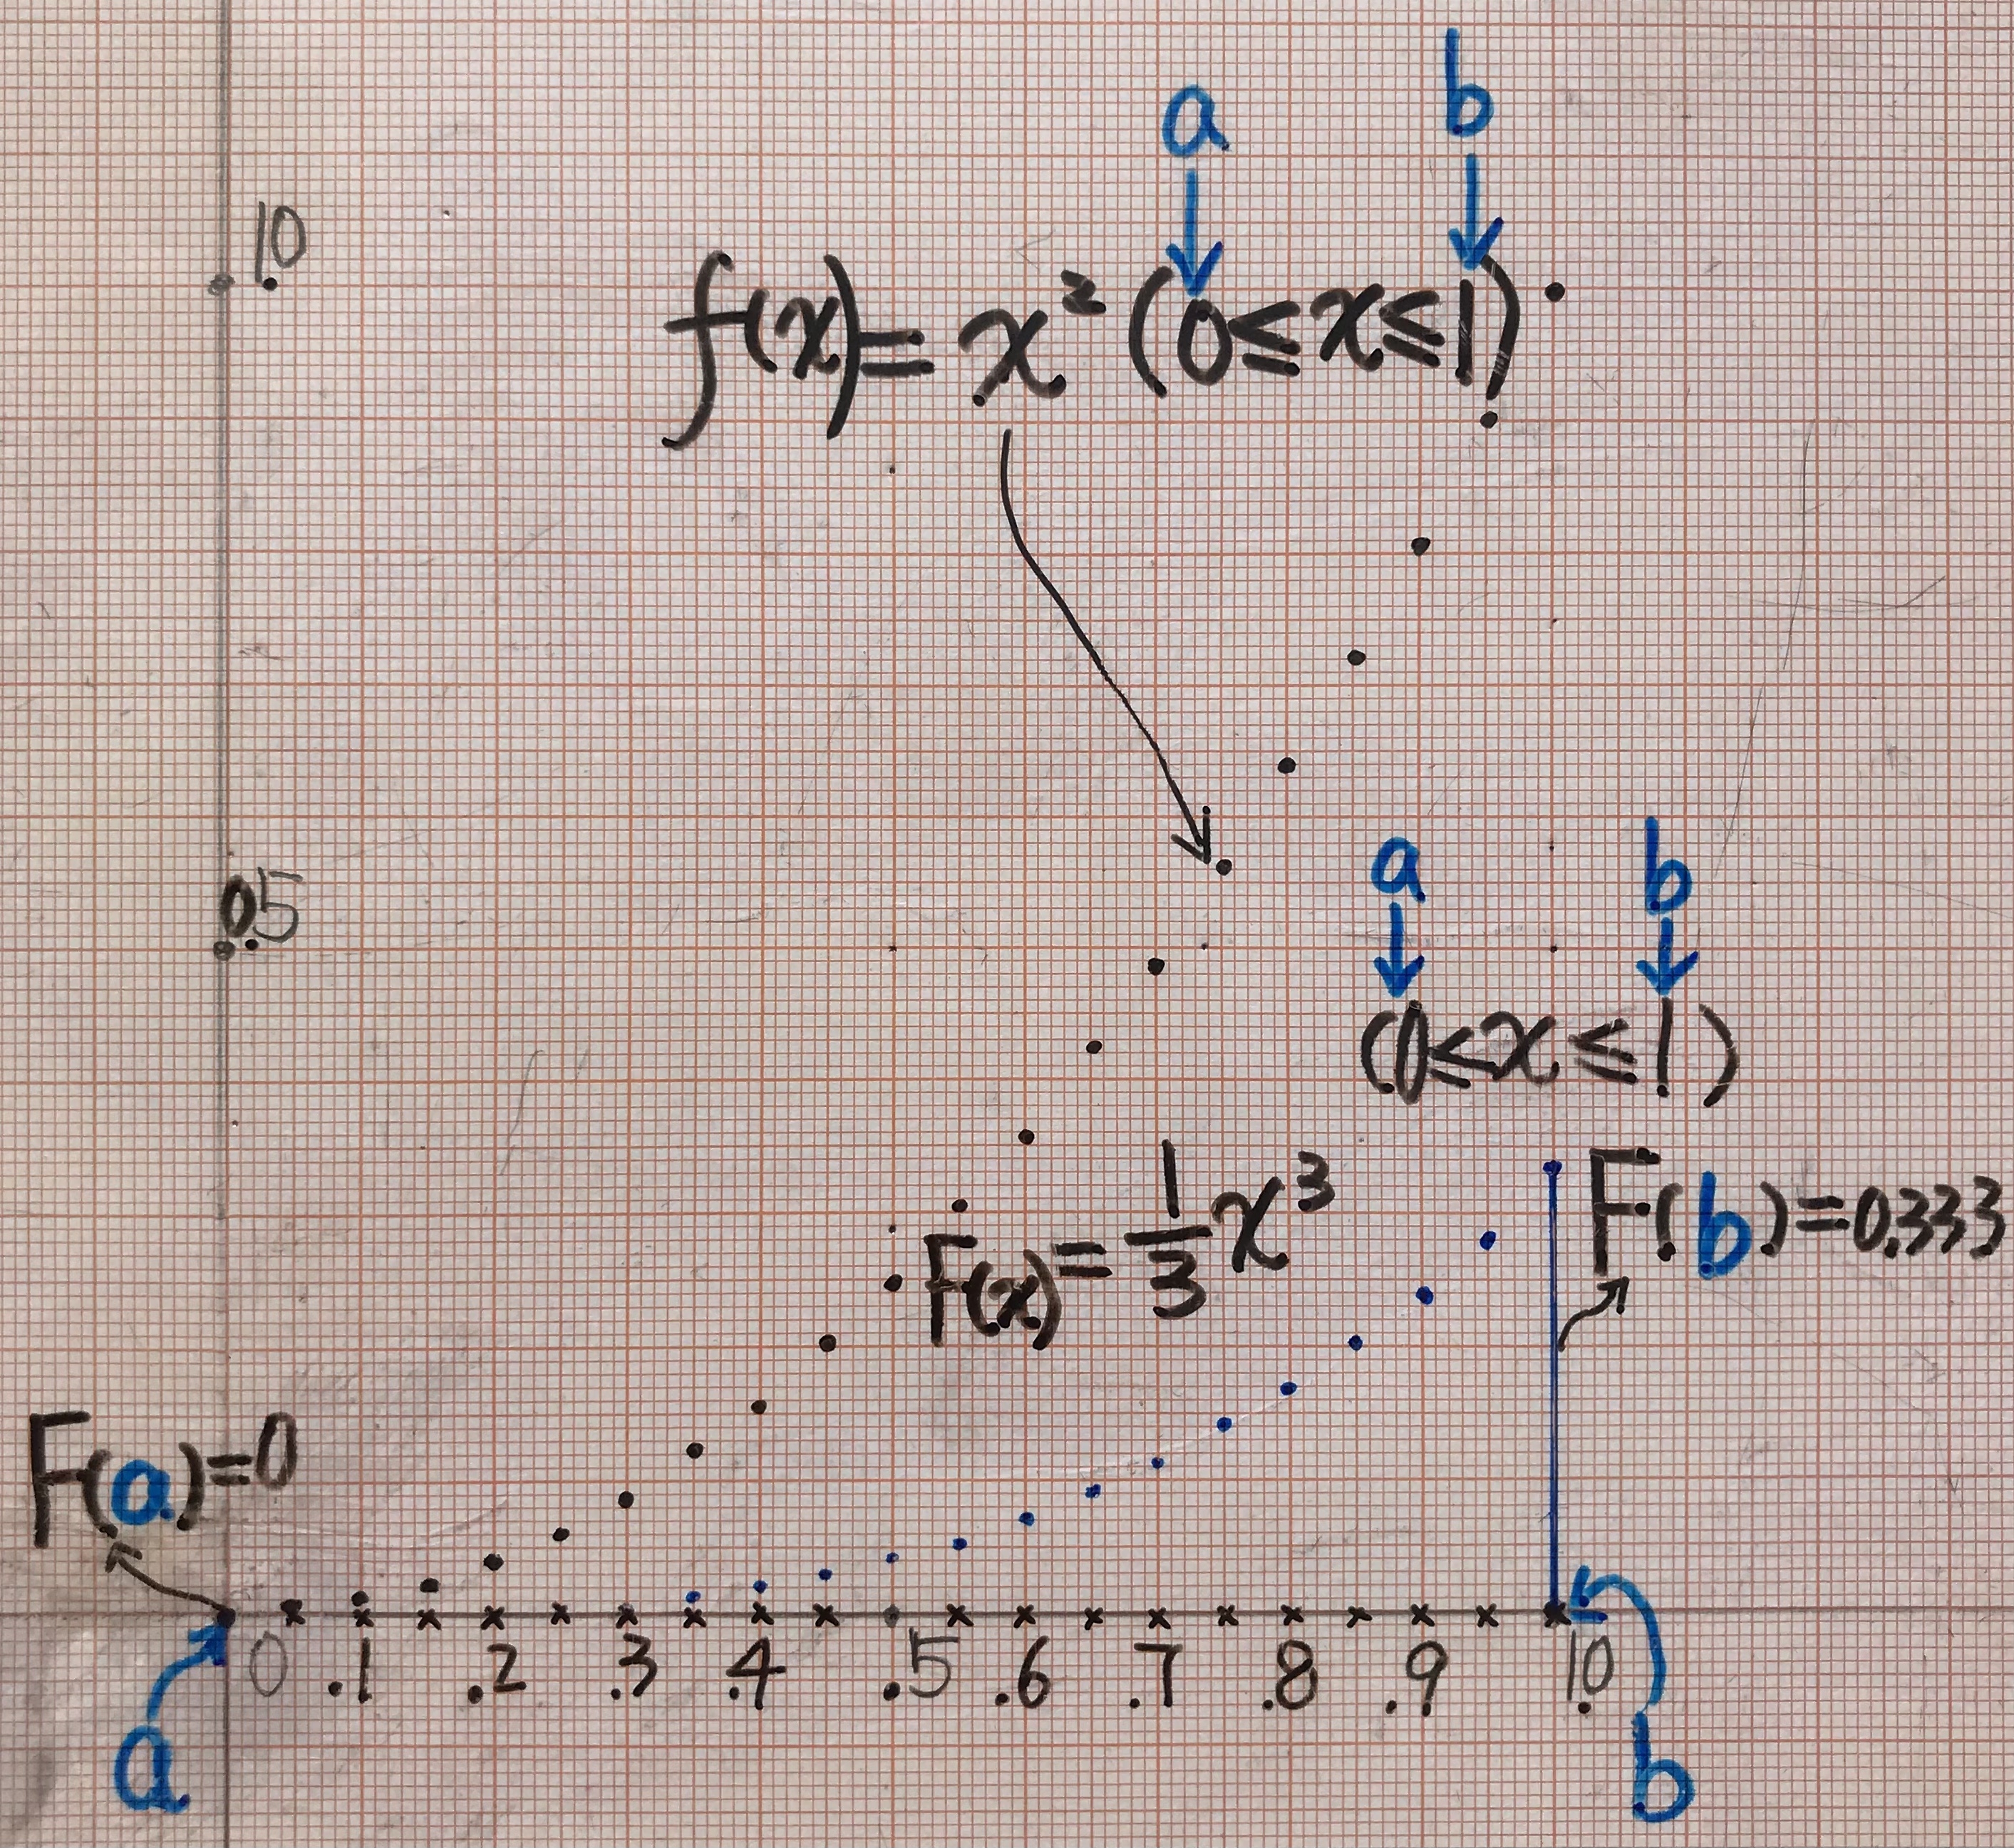 a b
1.0
f(x)=x² (0≤x≤1)
0.5
a b
(0≤x≤1)
F(x)=1/3 x³
F(b)=0.333
F(a)=0
0 .1 .2 .3 .4 .5 .6 .7 .8 .9 1.0
a b